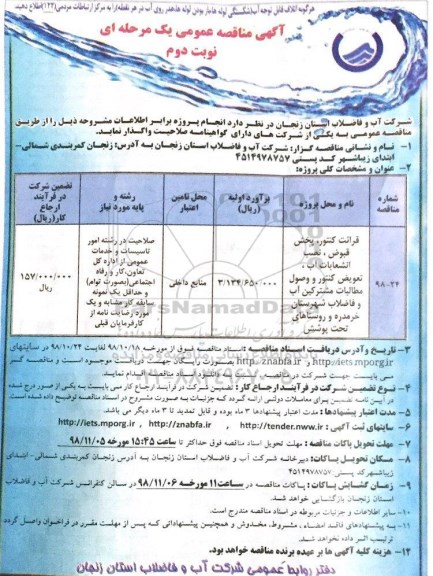 هرگونه اتلاف قابل توجه آب(شکستگی لوله ها،باز بودن لوله ها،هدر روی آب در هر نقطه)را به مرکز ارتباطات مردمی(۱۲۲)اطلاع دهید.
آگهی مناقصه عمومی یک مرحله ای
نوبت دوم
شرکت آب و فاضلاب استان زنجان در نظر دارد انجام پروژه برابر اطلاعات مشروحه ذیل را از طریق
مناقصه عمومی به یکی از شرکت های دارای گواهینامه صلاحیت واگذار نماید.
۱- نام و نشانی مناقصه گزار: شرکت آب و فاضلاب استان زنجان به آدرس: زنجان کمربندی شمالی-
ابتدای زیباشهر کد پستی ۴۵۱۴۹۷۸۷۵۷
۲- عنوان و مشخصات کلی پروژه:
شماره مناقصه
نام و محل پروژه
برآورد اولیه (ریال)
محل تامین اعتبار
رشته و پایه مورد نیاز
تضمین شرکت در فرآیند ارجاع کار(ریال)
۹۸-۲۴
قرائت کنتور، پخش
قبوض، نصب
انشعابات آب،
تعویض کنتور و وصول
مطالبات مشترکین آب
و فاضلاب شهرستان
خرمدره و روستاهای
تحت پوشش
۳/۱۳۴/۶۵۰/۰۰۰
منابع داخلی
صلاحیت در رشته امور
تاسیسات و خدمات
عمومی از اداره کل
تعاون، کار و رفاه
اجتماعی(بصورت توام)
و حداقل یک نمونه
سابقه کار مشابه و یک
مورد رضایت نامه از
کارفرمایان قبلی
۱۵۷/۰۰۰/۰۰۰
ریال
۳- تاریخ و آدرس دریافت اسناد مناقصه: اسناد مناقصه فوق از مورخه ۹۸/۱۰/۱۸ لغایت ۹۸/۱۰/۲۴ در سایتهای
http://iets.mporg.ir و http://znabfa.ir بصورت رایگان جهت دریافت موجود است و مناقصه گر
می بایست جهت شرکت در مناقصه
۴- نوع تضمین شرکت در فرآیند ارجاع کار: تضمین شرکت در فرآیند ارجاع کار می بایست به یکی از صور درج شده
در آیین نامه تضمین برای معاملات دولتی ارائه گردد که جزئیات به صورت مشروح در اسناد مناقصه توضیح داده شده است.
۵- مدت اعتبار پیشنهادها: مدت اعتبار پیشنهادها ۳ ماه بوده و قابل تمدید تا ۳ ماه دیگر می باشد.
۶- سایتهای ثبت آگهی: http://tender.nww.ir ، http://znabfa.ir ، http://iets.mporg.ir
۷- مهلت تحویل پاکات مناقصه: مهلت تحویل اسناد مناقصه فوق حداکثر تا ساعت ۱۵:۴۵ مورخه ۹۸/۱۱/۰۵
۸- مکان تحویل پاکات: دبیرخانه شرکت آب و فاضلاب استان زنجان به آدرس: زنجان کمربندی شمالی- ابتدای
زیباشهر کد پستی: ۴۵۱۴۹۷۸۷۵۷
۹- زمان گشایش پاکات: پاکات مناقصه در ساعت ۱۱ مورخه ۹۸/۱۱/۰۶ در سالن کنفرانس شرکت آب و فاضلاب
استان زنجان بازگشایی خواهد شد.
۱۰- سایر اطلاعات و جزئیات مربوطه در اسناد مناقصه مندرج است.
۱۱- به پیشنهادهای فاقد امضاء، مشروط، مخدوش و همچنین پیشنهاداتی که پس از مهلت مقرر در فراخوان واصل گردد
ترتیب اثر داده نخواهد شد.
۱۲- هزینه کلیه آگهی ها بر عهده برنده مناقصه خواهد بود.
دفتر روابط عمومی شرکت آب و فاضلاب استان زنجان